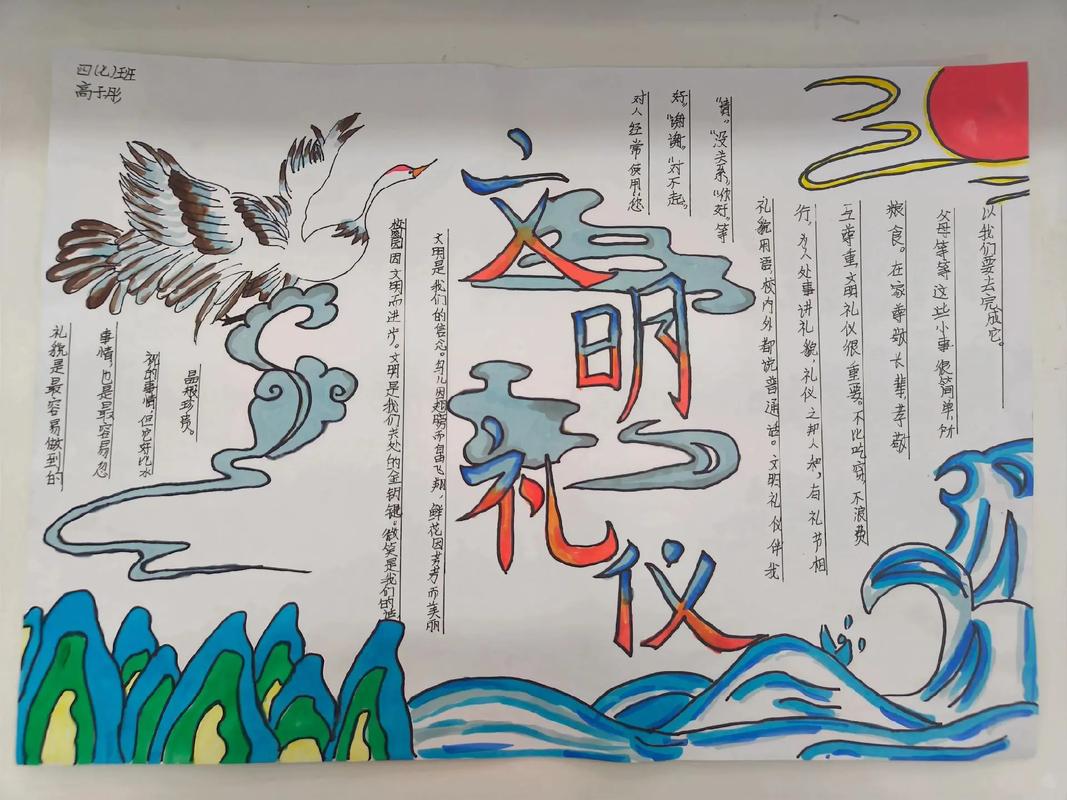 四(乙)班
高于彤
文明礼仪
礼貌是最容易做到的
事情,也是最容易忽
视的事情,但它好比水
晶般珍贵。
文明是我们的信念。鸟儿因翅膀而自由飞翔,鲜花因芬芳而美丽
校园因文明而进步。文明是我们共处的金钥匙。微笑是我们的
对人经常使用"您
好。"谢谢。"对不起。
"请。"没关系。"你好。"等
礼貌用语,校内外都说普通话。文明礼仪伴我
行,为人处事讲礼貌,礼仪之邦人人和,有礼节相
互尊重,文明礼仪很重要。不比吃穿,不浪费
粮食。在家尊敬长辈,孝敬
父母等等这些小事很简单,所
以我们要去完成它。